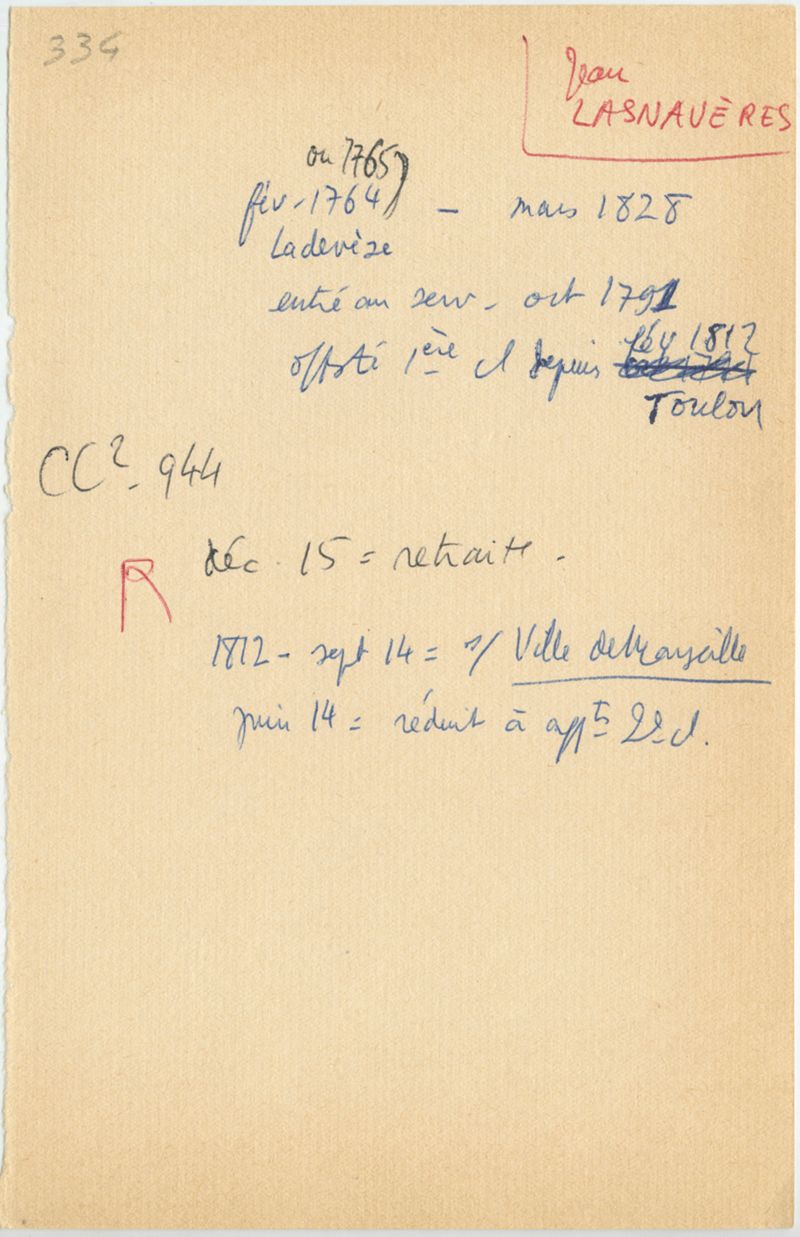 334
Jean
LASNAVÈRES
ou 1765)
fév. 1764 - mars 1828
Ladevèze
entré au serv. oct 1791
1ère cl depuis fév 1812
Toulon
CC2. 944
déc. 15 = retraite.
R
1812 - sept 14 = s/ Ville de Marseille
juin 14 = réduit à appts 2e cl.